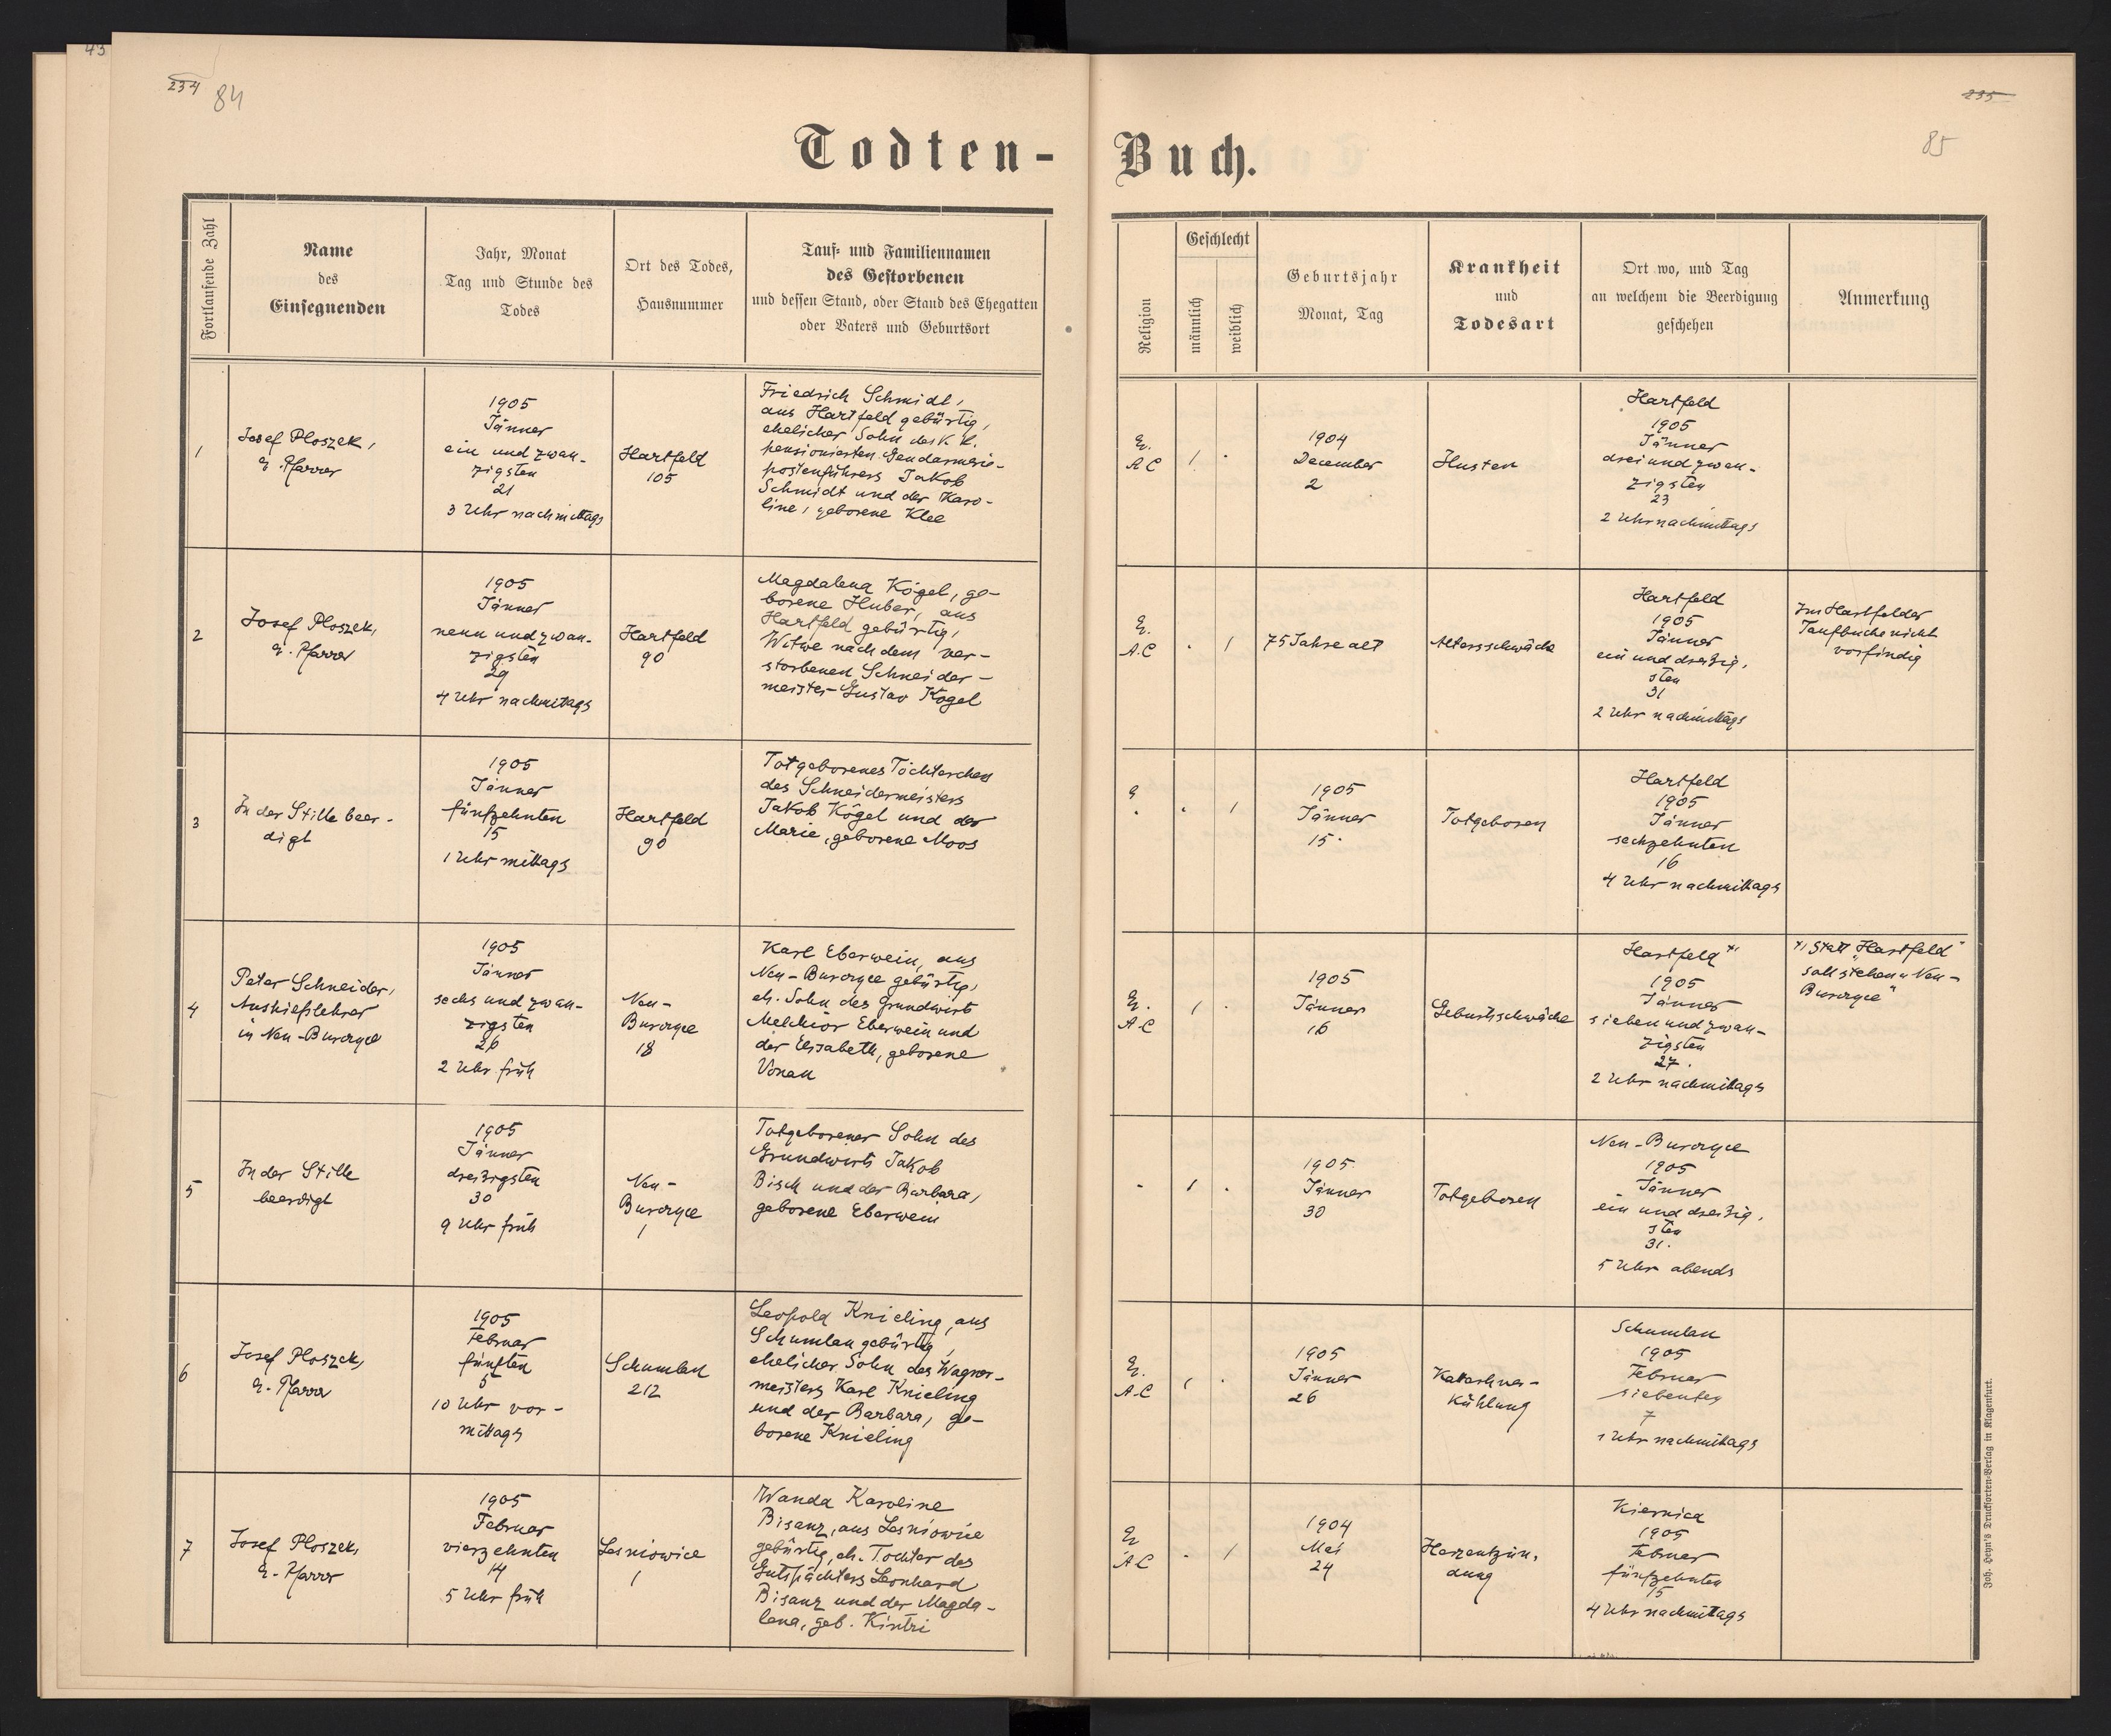 43
234
84
Todten-
Fortlaufende Zahl
Name
des
Einsegnenden
Jahr, Monat
Tag und Stunde des
Todes
Ort des Todes,
Hausnummer
Tauf- und Familiennamen
des Gestorbenen
und dessen Stand, oder Stand des Ehegatten
oder Vaters und Geburtsort
1
Josef Ploszek,
e. Pfarrer
1905
Jänner
ein und zwan-
zigsten
21
3 Uhr nachmittags
Hartfeld
105
Friedrich Schmidt,
aus Hartfeld gebürtig,
ehelicher Sohn des k. k.
pensionierten Gendarmerie-
postenführers Jakob
Schmidt und der Karo-
line, geborene Klee
2
Josef Ploszek,
e. Pfarrer
1905
Jänner
neun und zwan-
zigsten
29
4 Uhr nachmittags
Hartfeld
90
Magdalena Kögel, ge-
borene Huber, aus
Hartfeld gebürtig,
Witwe nach dem ver-
storbenen Schneider-
meister Gustav Kögel
3
In der Stille beer-
digt
1905
Jänner
fünfzehnten
15
1 Uhr mittags
Hartfeld
90
Totgeborenes Töchterchen
des Schneidermeisters
Jakob Kögel und der
Marie, geborene Moos
4
Peter Schneider,
Aushilfslehrer
in Neu-Burczyce
1905
Jänner
sechs und zwan-
zigsten
26
2 Uhr früh
Neu-
Burczyce
18
Karl Eberwein, aus
Neu-Burczyce gebürtig,
eh. Sohn des Grundwirts
Melchior Eberwein und
der Elisabeth, geborene
Vonau
5
In der Stille
beerdigt
1905
Jänner
dreißigsten
30
9 Uhr früh
Neu-
Burczyce
1
Totgeborener Sohn des
Grundwirts Jakob
Bisch und der Barbara,
geborene Eberwein
6
Josef Ploszek,
e. Pfarrer
1905
Februar
fünften
5
10 Uhr vor-
mittags
Schumlau
212
Leopold Knieling, aus
Schumlau gebürtig,
ehelicher Sohn des Wagner-
meisters Karl Knieling
und der Barbara, ge-
borene Knieling
7
Josef Ploszek,
e. Pfarrer
1905
Februar
vierzehnten
14
5 Uhr früh
Lesniowice
1
Wanda Karoline
Bisanz, aus Lesniowice
gebürtig, eh. Tochter des
Gutspächters Leonhard
Bisanz und der Magda-
lena, geb. Kintzi
235
85
Buch.
Religion
Geschlecht
männlich
weiblich
Geburtsjahr
Monat, Tag
Krankheit
und
Todesart
Ort wo, und Tag
an welchem die Beerdigung
geschehen
Anmerkung
E.
A C
1
.
1904
December
2
Husten
Hartfeld
1905
Jänner
drei und zwan-
zigsten
23
2 Uhr nachmittags
E.
A.C
.
1
75 Jahre alt
Altersschwäche
Hartfeld
1905
Jänner
ein und dreißig-
sten
31
2 Uhr nachmittags
Im Hartfelder
Taufbuche nicht
vorfindig
.
1
1905
Jänner
15.
Totgeboren
Hartfeld
1905
Jänner
sechzehnten
16
4 Uhr nachmittags
E.
A C
1
.
1905
Jänner
16
Geburtsschwäche
Hartfeld x)
1905
Jänner
sieben und zwan-
zigsten
27.
2 Uhr nachmittags
x) Statt "Hartfeld"
soll stehen "Neu-
Burczyce"
-
1
.
1905.
Jänner
30
Totgeboren
Neu-Burczyce
1905
Jänner
ein und dreißig-
sten
31.
5 Uhr abends
E.
A.C
1
.
1905
Jänner
26
Kühlung
Schumlau
1905
Februar
siebenten
7
1 Uhr nachmittags
E
A C
.
1
1904
Mai
24
Herzentzün-
dung
Kiernica
1905
Februar
fünfzehnten
15
4 Uhr nachmittags
Joh. Heyn's Drucksorten-Verlag in Klagenfurt.